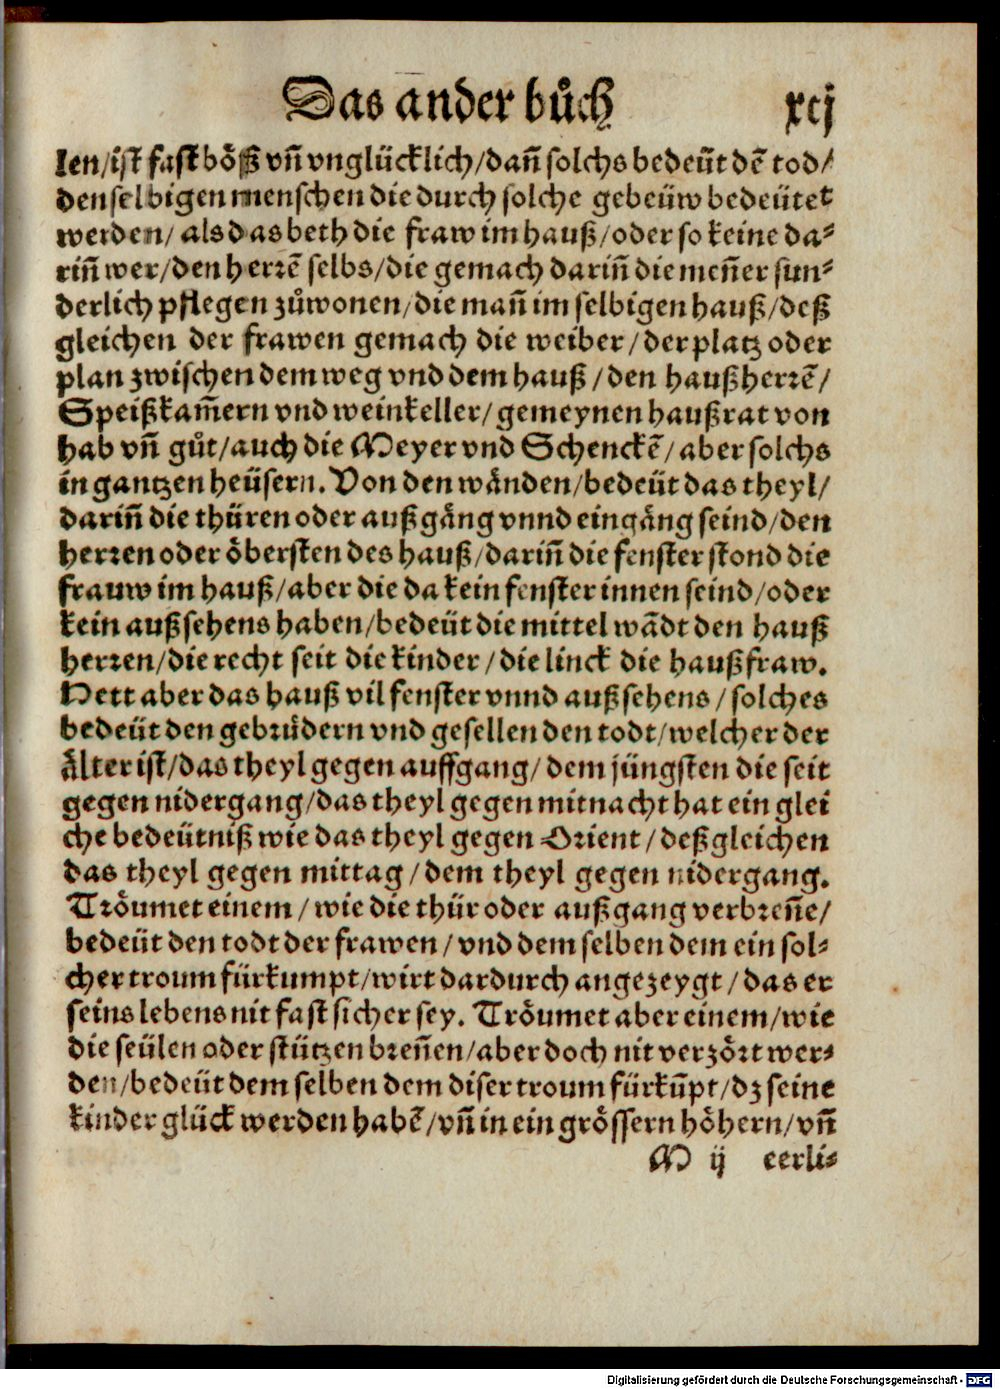 Das ander bůch xcj
len/ist fast bôß vn̄ vnglücklich/dan̄ solchs bedeüt dē tod/
denselbigen menschen die durch solche gebeüw bedeütet
werden/ als das beth die fraw im hauß/oder so keine da⸗
rin̄ wer/den herrē selbs/die gemach darin̄ die men̄er sun⸗
derlich pflegen zůwonen/die man̄ im selbigen hauß/deß
gleichen der frawen gemach die weiber/der platz oder
plan zwischen dem weg vnd dem hauß/den haußherrē/
Speißkam̄ern vnd weinkeller/gemeynen haußrat von
hab vn̄ gůt/auch die Meyer vnd Schenckē/aber solchs
in gantzen heüsern. Von den wånden/bedeüt das theyl/
darin̄ die thüren oder außgång vnnd eingång seind/den
herren oder ôbersten des hauß/darin̄ die fenster stond die
frauw im hauß/aber die da kein fenster innen seind/oder
kein außsehens haben/bedeüt die mittel wādt den hauß
herren/die recht seit die kinder/die linck die haußfraw.
Hett aber das hauß vil fenster vnnd außsehens/solches
bedeüt den gebrůdern vnd gesellen den todt/welcher der
ålter ist/das theyl gegen auffgang/dem jüngsten die seit
gegen nidergang/das theyl gegen mitnacht hat ein glei
che bedeütniß wie das theyl gegen Orient/deßgleichen
das theyl gegen mittag/dem theyl gegen nidergang.
Trôumet einem/wie die thür oder außgang verbren̄e/
bedeüt den todt der frawen/vnd dem selben dem ein sol⸗
cher troum fürkumpt/wirt dardurch angezeygt/das er
seins lebens nit fast sicher sey. Trôumet aber einem/wie
die seülen oder stützen bren̄en/aber doch nit verzôrt wer⸗
den/bedeüt dem selben dem diser troum fürkūpt/dz seine
kinder glück werden habē/vn̄ in ein grôssern hôhern/vn̄
M ij eerli⸗
Digitalisierung gefördert durch die Deutsche Forschungsgemeinschaft - DFG